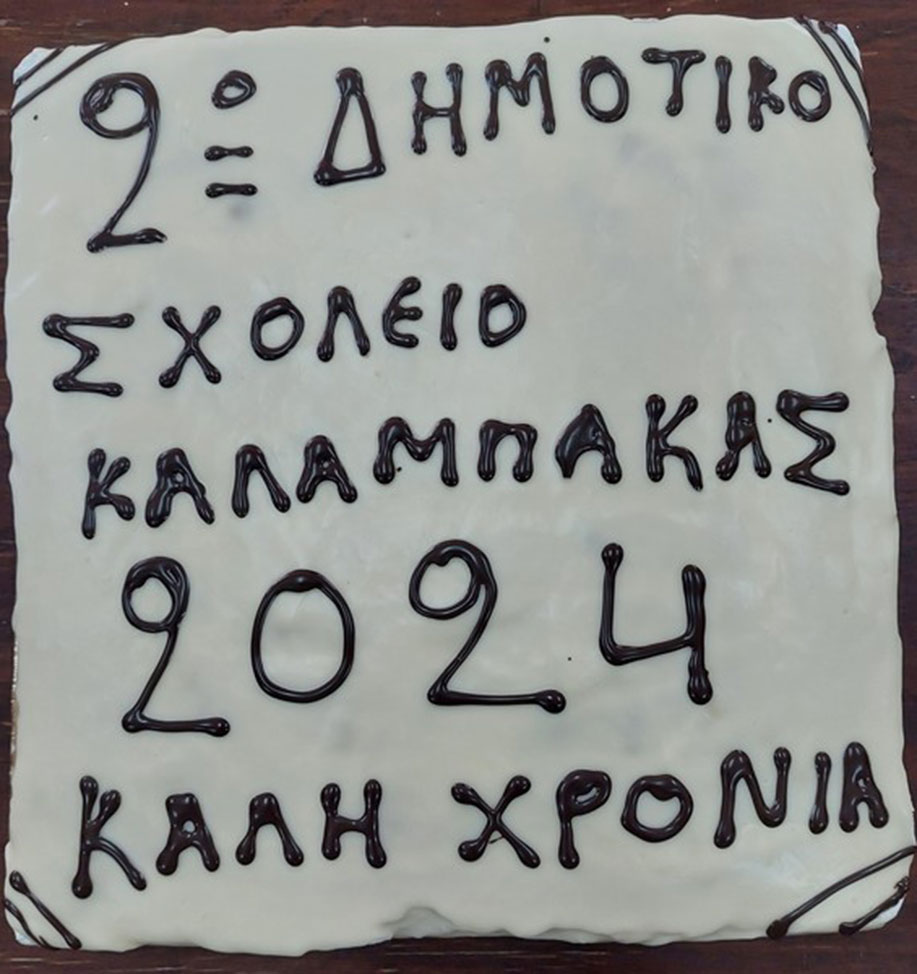 2ο ΔΗΜΟΤΙΚΟ
ΣΧΟΛΕΙΟ
ΚΑΛΑΜΠΑΚΑΣ
2024
ΚΑΛΗ ΧΡΟΝΙΑ